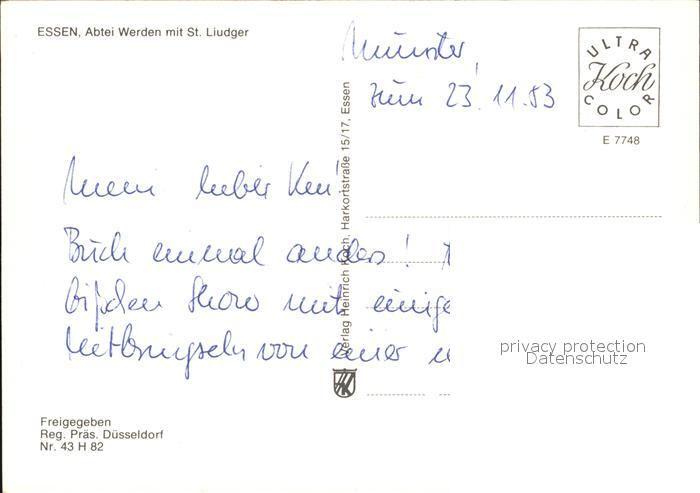 ESSEN, Abtei Werden mit St. Liudger
Münster,
zum 23.11.83
ULTRA
Koch
COLOR
E 7748
Mein lieber
Buch einmal anders!
bißchen Show mit einige
Mitbringseln von einer
Verlag Heinrich Koch, Harkortstraße 15/17, Essen
privacy protection
Datenschutz
Freigegeben
Reg. Präs. Düsseldorf
Nr. 43 H 82